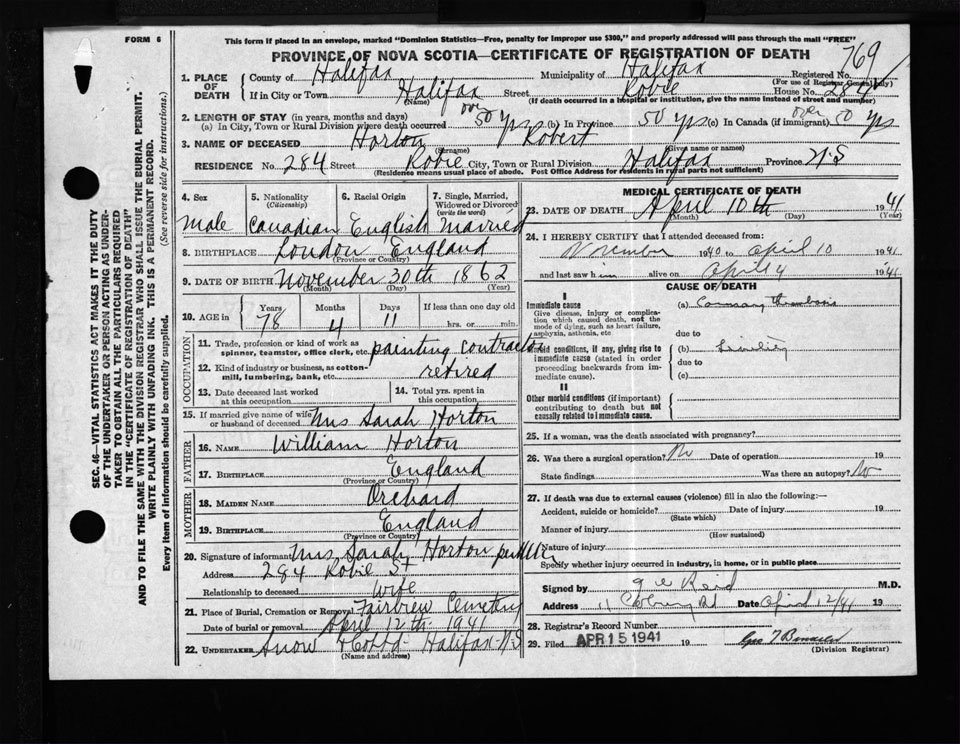 FORM 6
This form if placed in an envelope, marked "Dominion Statistics—Free, penalty for improper use $300," and properly addressed will pass through the mail "FREE"
PROVINCE OF NOVA SCOTIA—CERTIFICATE OF REGISTRATION OF DEATH
769
1. PLACE OF DEATH County of Halifax Municipality of Halifax Registered No.
(For use of Registrar General only)
If in City or Town Halifax Street Robie House No. 284
(Name) (If death occurred in a hospital or institution, give the name instead of street and number)
2. LENGTH OF STAY (in years, months and days)
(a) In City, Town or Rural Division where death occurred over 50 yrs (b) In Province 50 yrs (c) In Canada (if immigrant) over 50 yrs
3. NAME OF DECEASED Horton Robert
(Surname) (Given name or names)
RESIDENCE No. 284 Street Robie City, Town or Rural Division Halifax Province N.S
(Residence means usual place of abode. Post Office Address for residents in rural parts not sufficient)
4. Sex 5. Nationality (Citizenship) 6. Racial Origin 7. Single, Married, Widowed or Divorced (write the word)
male Canadian English married
8. BIRTHPLACE London England
(Province or Country)
9. DATE OF BIRTH November 30th 1862
(Month) (Day) (Year)
10. AGE in Years Months Days If less than one day old
78 4 11 hrs. or min.
OCCUPATION
11. Trade, profession or kind of work as spinner, teamster, office clerk, etc. painting contractor
12. Kind of industry or business, as cotton-mill, lumbering, bank, etc. retired
13. Date deceased last worked at this occupation
14. Total yrs. spent in this occupation
15. If married give name of wife or husband of deceased Mrs Sarah Horton
FATHER
16. NAME William Horton
17. BIRTHPLACE England
(Province or Country)
MOTHER
18. MAIDEN NAME Orchard
19. BIRTHPLACE England
(Province or Country)
20. Signature of informant Mrs Sarah Horton
Address 284 Robie St
Relationship to deceased wife
21. Place of Burial, Cremation or Removal Fairview Cemetery
Date of burial or removal April 12th 1941
22. UNDERTAKER Snow Halifax N.S
(Name and address)
MEDICAL CERTIFICATE OF DEATH
23. DATE OF DEATH April 10th 1941
(Month) (Day) (Year)
24. I HEREBY CERTIFY that I attended deceased from:
November 1940 to April 10 1941
and last saw him alive on April 4 1941
CAUSE OF DEATH
I
Immediate cause (a) Coronary Thrombosis
Give disease, injury or complication which caused death, not the mode of dying, such as heart failure, asphyxia, asthenia, etc.
due to
Morbid conditions, if any, giving rise to immediate cause (stated in order proceeding backwards from immediate cause). (b)
due to
(c)
II
Other morbid conditions (if important) contributing to death but not causally related to immediate cause.
25. If a woman, was the death associated with pregnancy?
26. Was there a surgical operation? No Date of operation 19
State findings Was there an autopsy? No
27. If death was due to external causes (violence) fill in also the following:—
Accident, suicide or homicide? Date of injury 19
(State which)
Manner of injury
(How sustained)
Nature of injury
Specify whether injury occurred in industry, in home, or in public place
Signed by Reid M.D.
Address 11 Coburg Rd Date April 12/41 19
28. Registrar's Record Number
29. Filed APR 15 1941 19
(Division Registrar)
SEC. 46—VITAL STATISTICS ACT MAKES IT THE DUTY
OF THE UNDERTAKER OR PERSON ACTING AS UNDER-
TAKER TO OBTAIN ALL THE PARTICULARS REQUIRED
IN THE "CERTIFICATE OF REGISTRATION OF DEATH"
AND TO FILE THE SAME WITH THE DIVISION REGISTRAR WHO SHALL ISSUE THE BURIAL PERMIT.
WRITE PLAINLY WITH UNFADING INK. THIS IS A PERMANENT RECORD.
Every item of information should be carefully supplied. (See reverse side for instructions.)